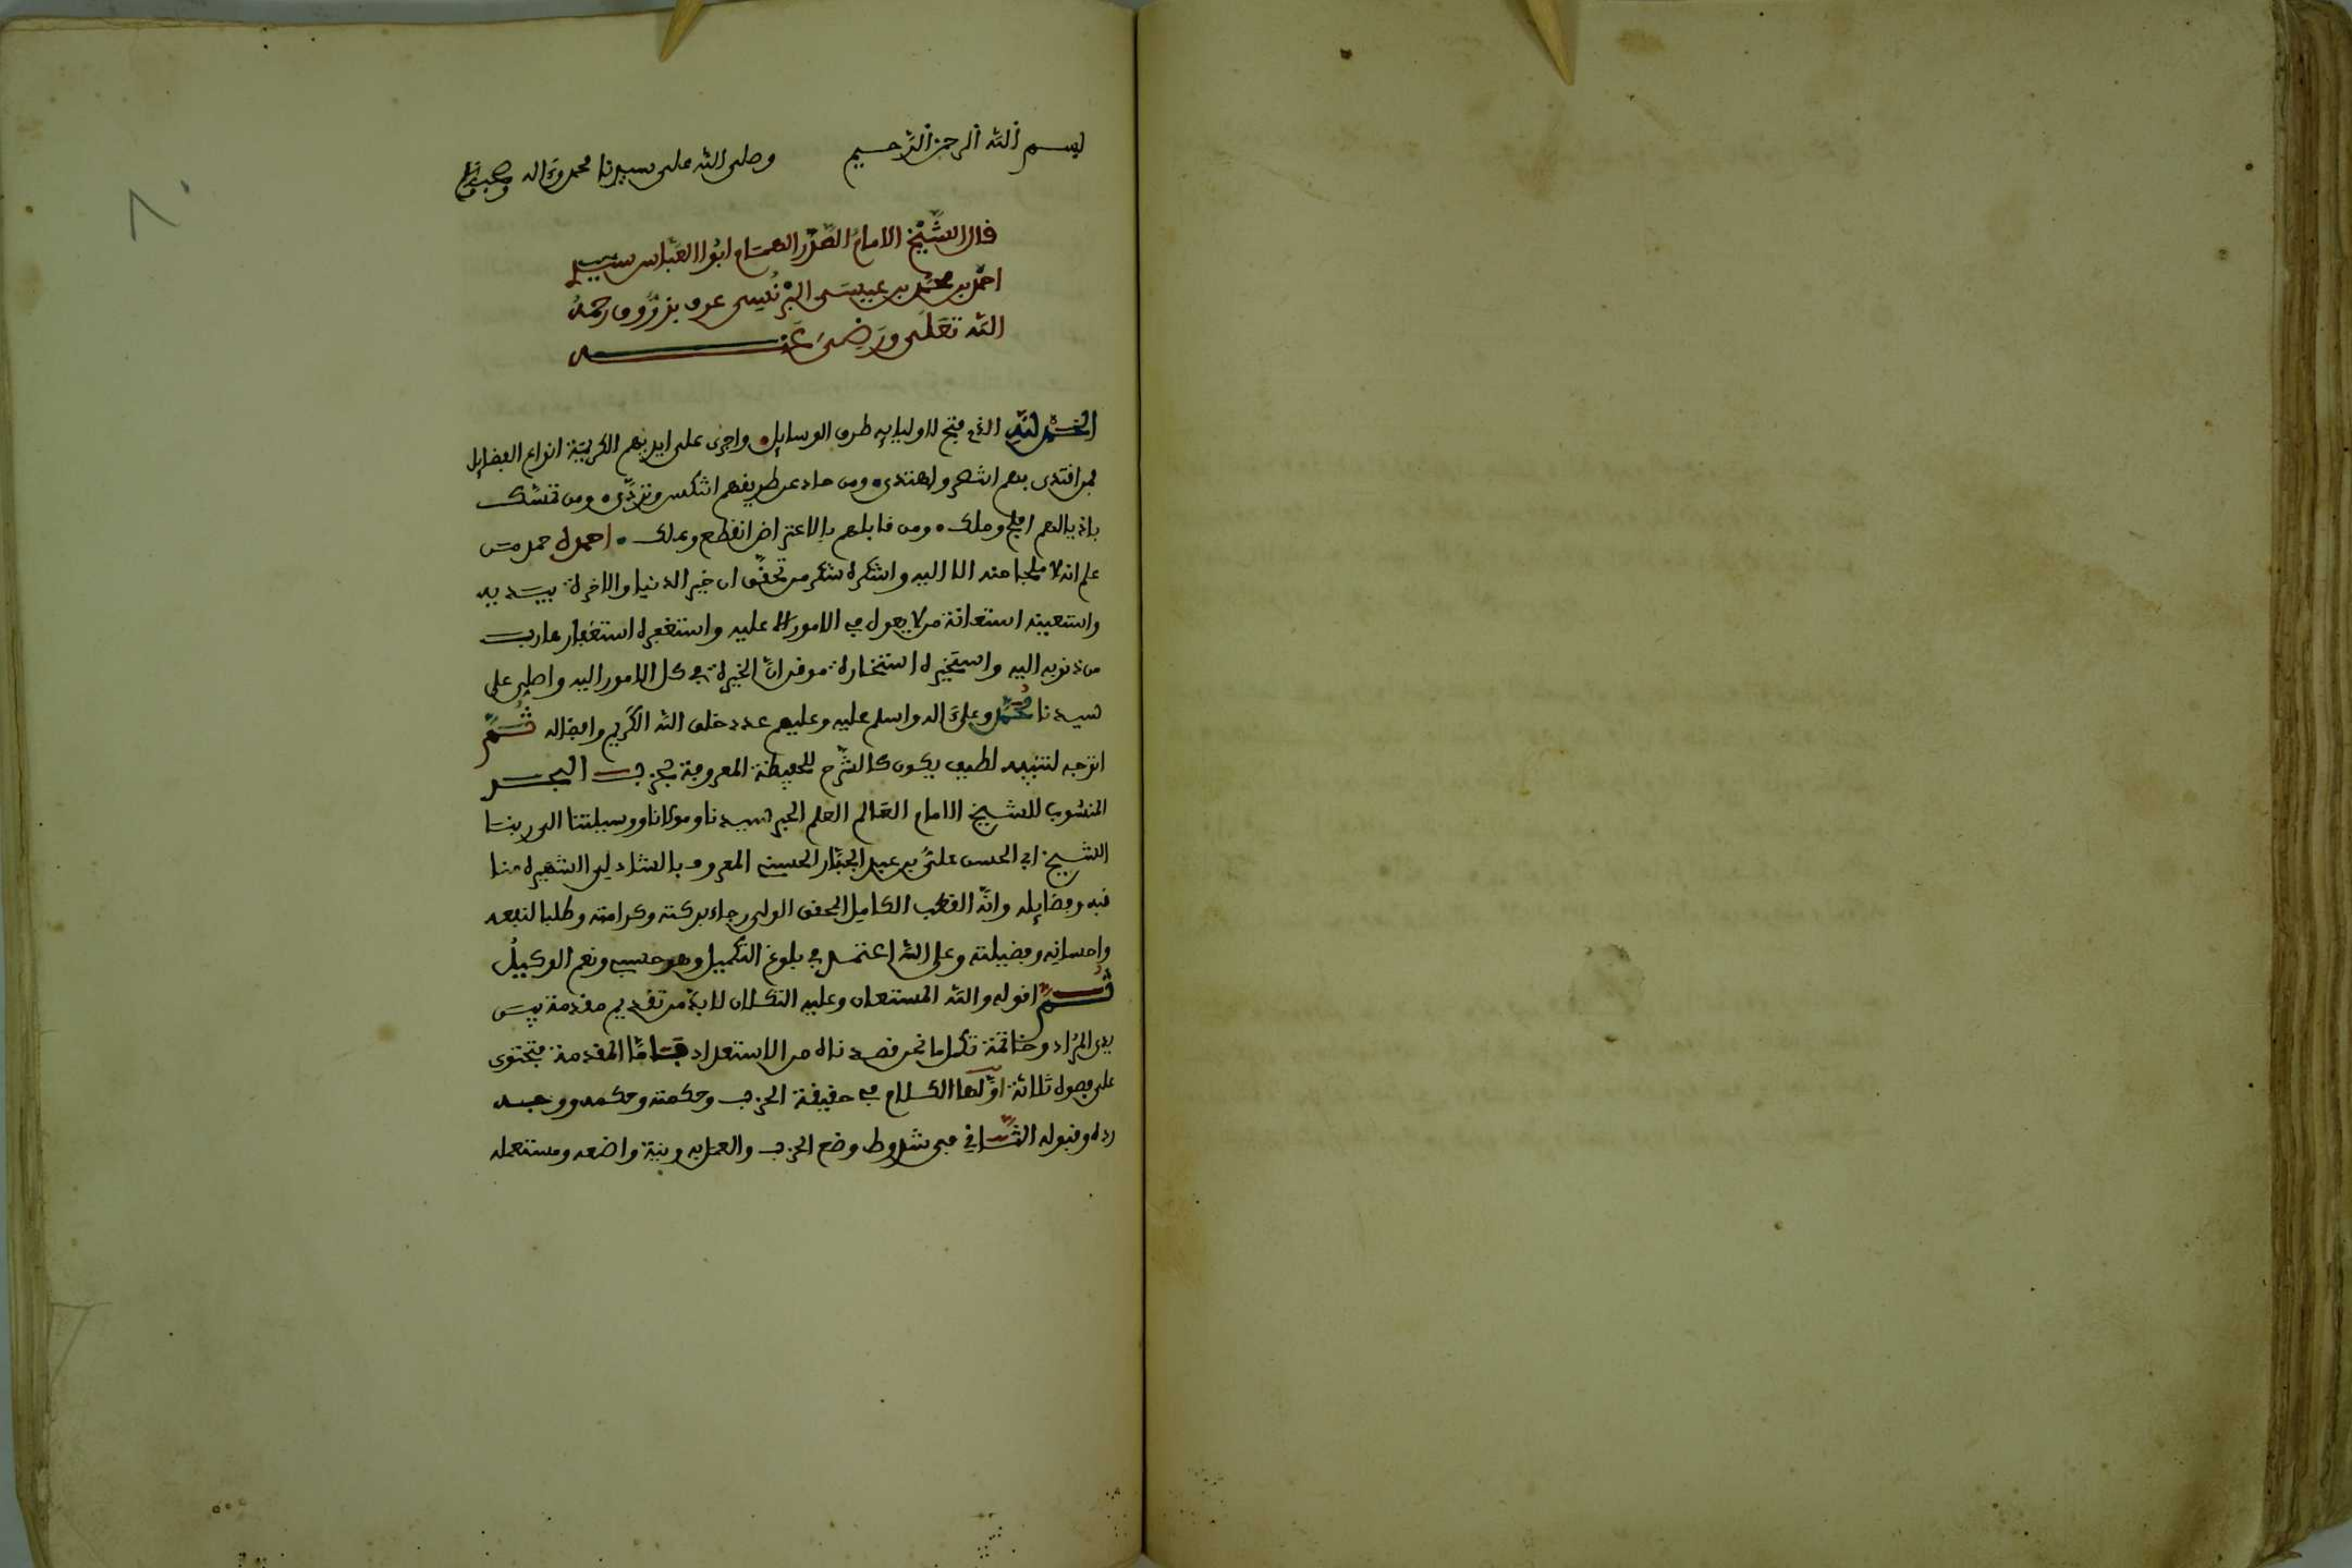 بسم الله الرحمن الرحيم وصلى الله على سيدنا محمد وءاله وصحبه وسلم
قال الشيخ الامام الصدر الهمام ابوا العباس سيدي
احمد بن محمد بن عيسى البرنسي عرف بزروق رحمه
الله تعلى ورضى عنه
الحمد لله الذي فتح لاوليايه طرق الوسايل واجرى على ايديهم الكريمة انواع الفضايل
فمن اقتدى بهم انتصر واهتدى ومن حاد عن طريقهم انتكس وتردى ومن تمسك
باذيالهم افلح وملك ومن قابلهم بالاعتراض انقطع وهلك احمده حمد من
علم انه لا ملجا منه الا اليه واشكره شكر من تحقق ان خير الدنيا والاخرة بيديه
واستعينه استعانة من لا يعول في الامور الا عليه واستغفره استغفار هارب
من ذنوبه اليه واستخيره استخارة موقن ان الخيرة في كل الامور اليه واصلي على
سيدنا محمد وعلى ءاله واسلم عليه وعليهم عدد خلق الله الكريم وافضاله ثم
اتوجه لتنبيه لطيف يكون كالشرح للحفيظة المعروفة بحزب البحر
المنسوب للشيخ الامام العالم العلم الحبر سيدنا ومولانا ووسيلتنا الى ربنا
الشيخ ابي الحسن علي بن عبد الجبار الحسيني المعروف بالشادلي الشهيرة منا
قبه وفضايله وانه القطب الكامل المحقق الولي رجاء بركته وكرامته وطلبا لنفعه
واحسانه وفضيلته وعلى الله اعتمد في بلوغ التكميل وهو حسبي ونعم الوكيل
ثم اقول والله المستعان وعليه التكلان لا بد من تقديم مقدمة بين
يدى المراد وخاتمة تكمل ما نحن قصدناه من الاستعداد فاما المقدمة فتحتوى
على فصول ثلاثة اولها الكلام في حقيقة الحزب وحكمته وحكمه ووجه
رده وقبوله الثاني في شروط وضع الحزب والعمل به ونية واضعه ومستعمله